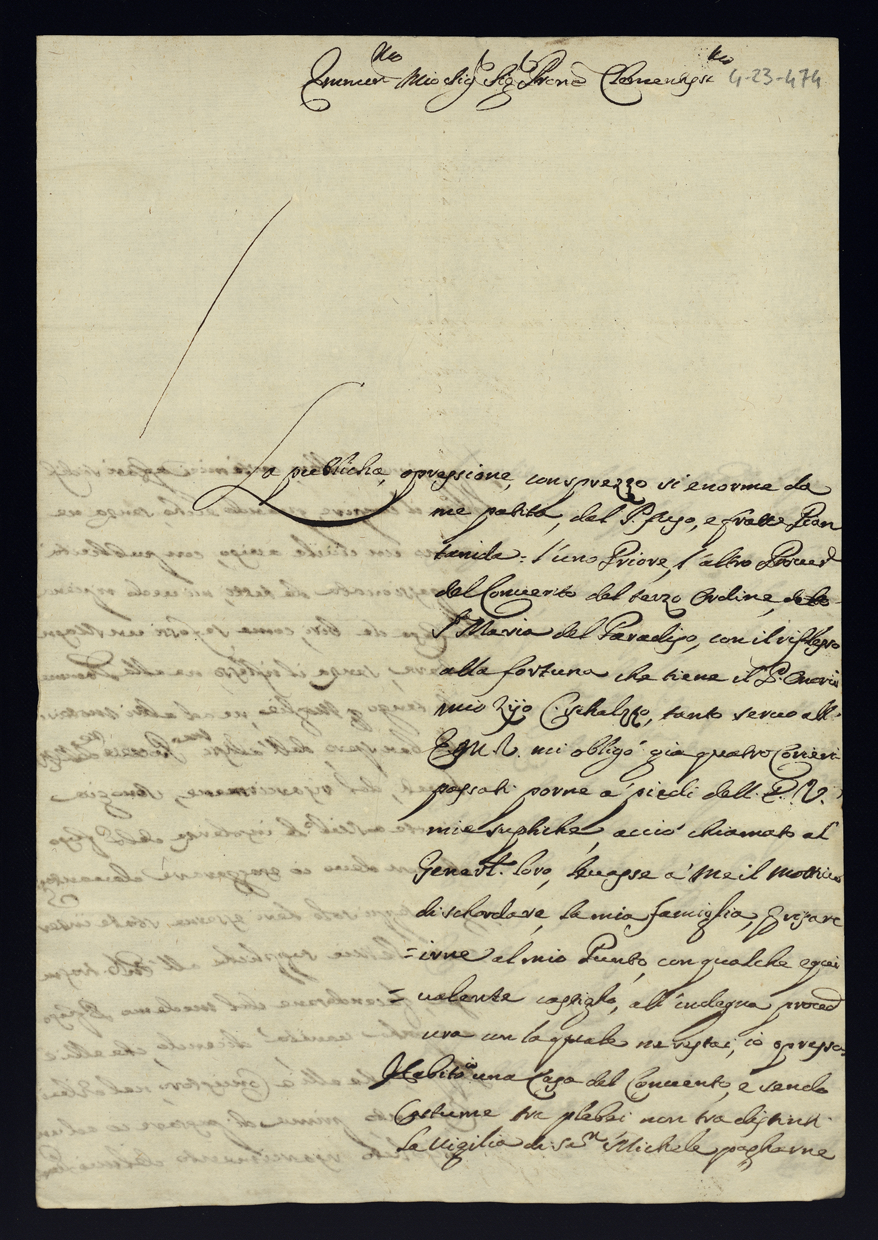 Emmen.mo Mio Sig.r Sig.r Prone Clementiss.mo 4-23-474
La publicha, opressione, con sprezzo si enorme da
me patita, del P. Pugo, e fratte Pian
tanida: l'uno Priore, l'altro Procur.
del Convento del terzo Ordine,
S.ta Maria del Paradiso, con il riflesso
alla fortuna che tiene il P.
mio Zijo schalzo, tanto servo all.
Em. V. mi obligò già quatro Corieri
passati porne a' piedi dell. E. V.
mie supliche, acciò chiamato al
General. loro, levasse a' me il mottivo
di schordare, la mia famiglia, e
irne al mio Punto, con qualche equi
= valente castigho, all'indegna proced
ura con la quale ne restai, io opresso.
Habito una Casa del Convento, e sendo
Costume tra plebei non tra distinti
la Vigilia di San Michele pagharne